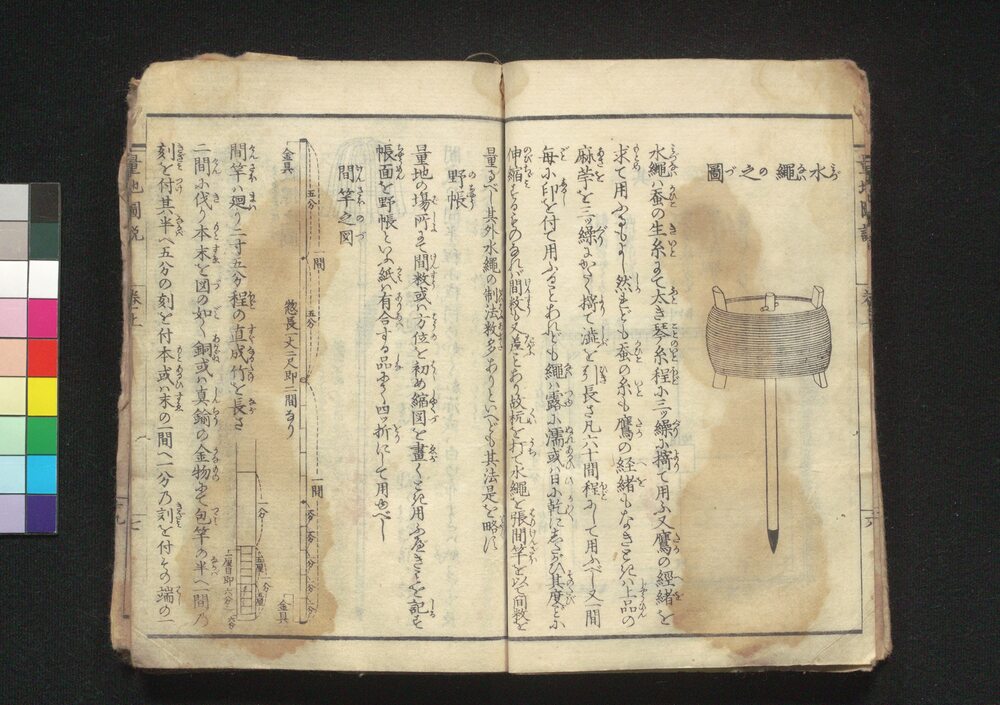 水繩之圖
水繩ハ蚕の生糸にて太き琴ノ糸程に三ッ繰に搓て用ふ又鷹の經緒を
求て用ふるもよし然れども蚕の糸も鷹の経緒もなきときハ上品の
麻苧を三ッ繰にかたく搓て澁を引長さ凡六十間程にして用ふべし又一間
毎に印を付て用ふることあれども繩ハ露に濡或ハ日に乾にしたがひ其度ごとに
伸縮するものなれバ間数も又差ことあり故杭を打て水繩を張間竿を以て間数を
量るべし其外水繩の制法数多ありといへども其法是を略す
野帳
量地の場所にて間数或ハ方位を初め縮図を畫くとき用ふべきことを記す
帳面を野帳といふ紙ハ有合する品にて四ッ折にして用ゆべし
間竿之図
金具
五分
一間
五分
惣長一丈二尺即二間なり
一間
金具
間竿ハ廻り二寸五分程の直成竹を長さ
二間に伐り本末を図の如く銅或ハ真鍮の金物にて包竿の半へ一間乃
刻を付其六半へ五分の刻を付本或ハ末の一間へ一分乃刻を付その端の一
量地圖説
巻上